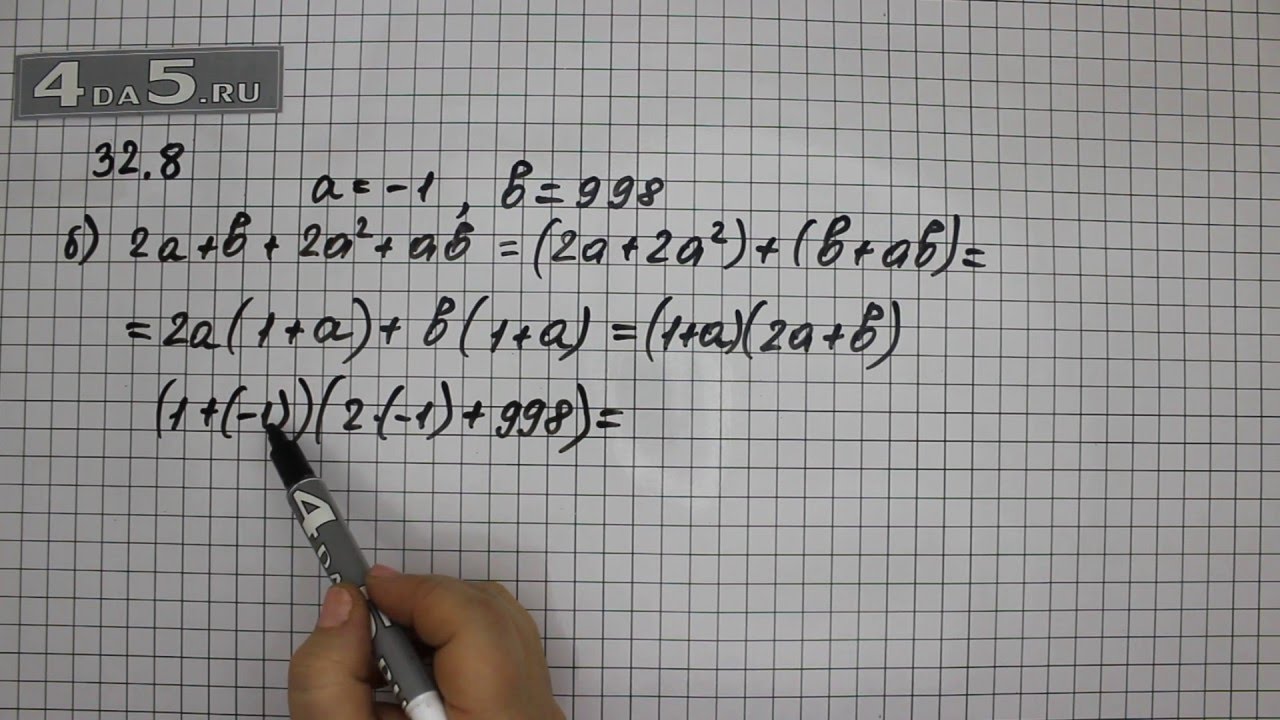 4DA5.RU
32.8
a = -1, b = 998
б) 2a + b + 2a² + ab = (2a + 2a²) + (b + ab) =
= 2a(1+a) + b(1+a) = (1+a)(2a+b)
(1+(-1))(2·(-1)+998) =